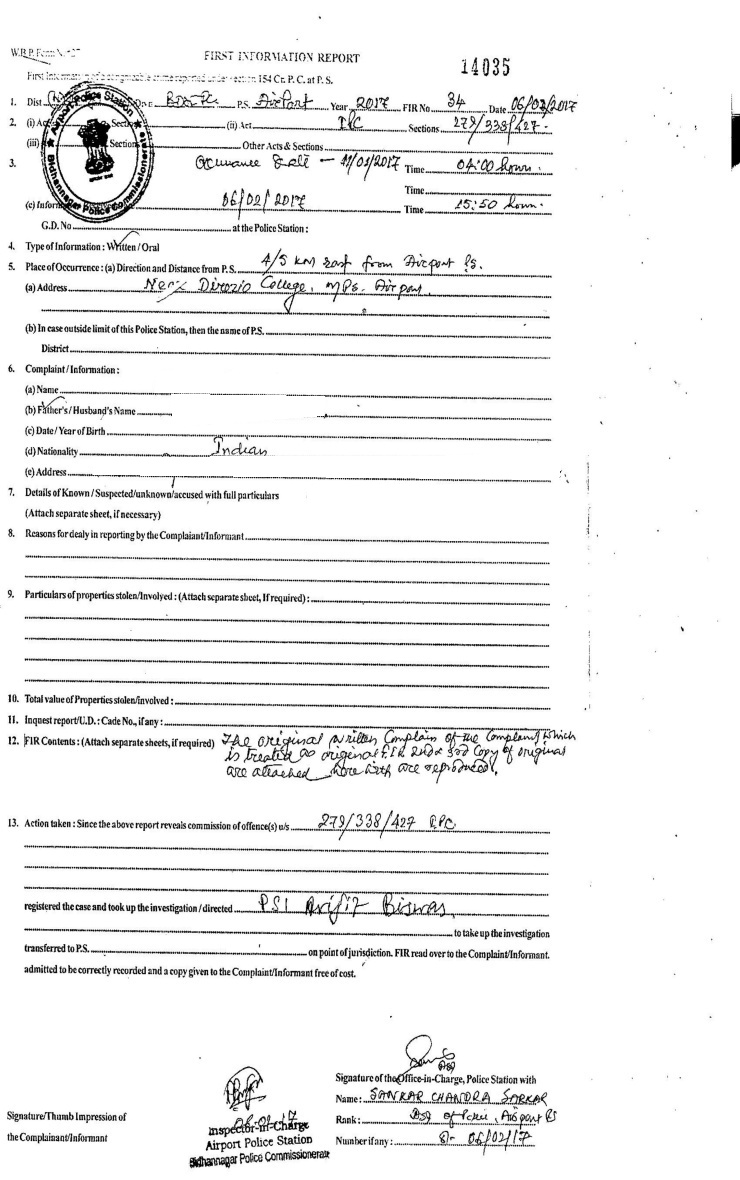 W.B.P. Form No. 27
FIRST INFORMATION REPORT
14035
First Information of a cognizable crime reported under section 154 Cr. P. C. at P. S.
1. Dist. P.S. Airport Year 2017 FIR No. 34 Date 06/02/2017
2. (i) Act Section (ii) Act IPC Sections 279/338/427.
(iii) Section Other Acts & Sections
3. Occurance Date - 11/01/2017 Time 04:00 hours.
Time
(c) Inform 06/02/2017 Time 15:50 hours.
G.D. No at the Police Station :
Airport Police Station
Bidhannagar Police Commissionerate
4. Type of Information : Written / Oral
5. Place of Occurrence : (a) Direction and Distance from P.S. 4/5 km east from Airport P.S.
(a) Address Near Dirozio College, Airport.
(b) In case outside limit of this Police Station, then the name of P.S.
District
6. Complaint / Information :
(a) Name
(b) Father's / Husband's Name
(c) Date / Year of Birth
(d) Nationality Indian
(e) Address
7. Details of Known / Suspected/unknown/accused with full particulars
(Attach separate sheet, if necessary)
8. Reasons for dealy in reporting by the Complaiant/Informant
9. Particulars of properties stolen/Involved : (Attach separate sheet, If required) :
10. Total value of Properties stolen/involved :
11. Inquest report/U.D. : Cade No., if any :
12. FIR Contents : (Attach separate sheets, if required) The original written Complain of the Complaint which
is treated as original F.I.R and 3rd Copy of original
are attached here with are reproduced.
13. Action taken : Since the above report reveals commission of offence(s) u/s 279/338/427 IPC
registered the case and took up the investigation / directed PSI Arijit Biswas,
to take up the investigation
transferred to P.S. on point of jurisdiction. FIR read over to the Complaint/Informant.
admitted to be correctly recorded and a copy given to the Complaint/Informant free of cost.
Signature of the Office-in-Charge, Police Station with
Name : SANKAR CHANDRA SARKAR
Rank : of Police, Airport PS
Number if any : 06/02/17
Signature/Thumb Impression of
the Complainant/Informant
Inspector-in-Charge
Airport Police Station
Bidhannagar Police Commissionerate